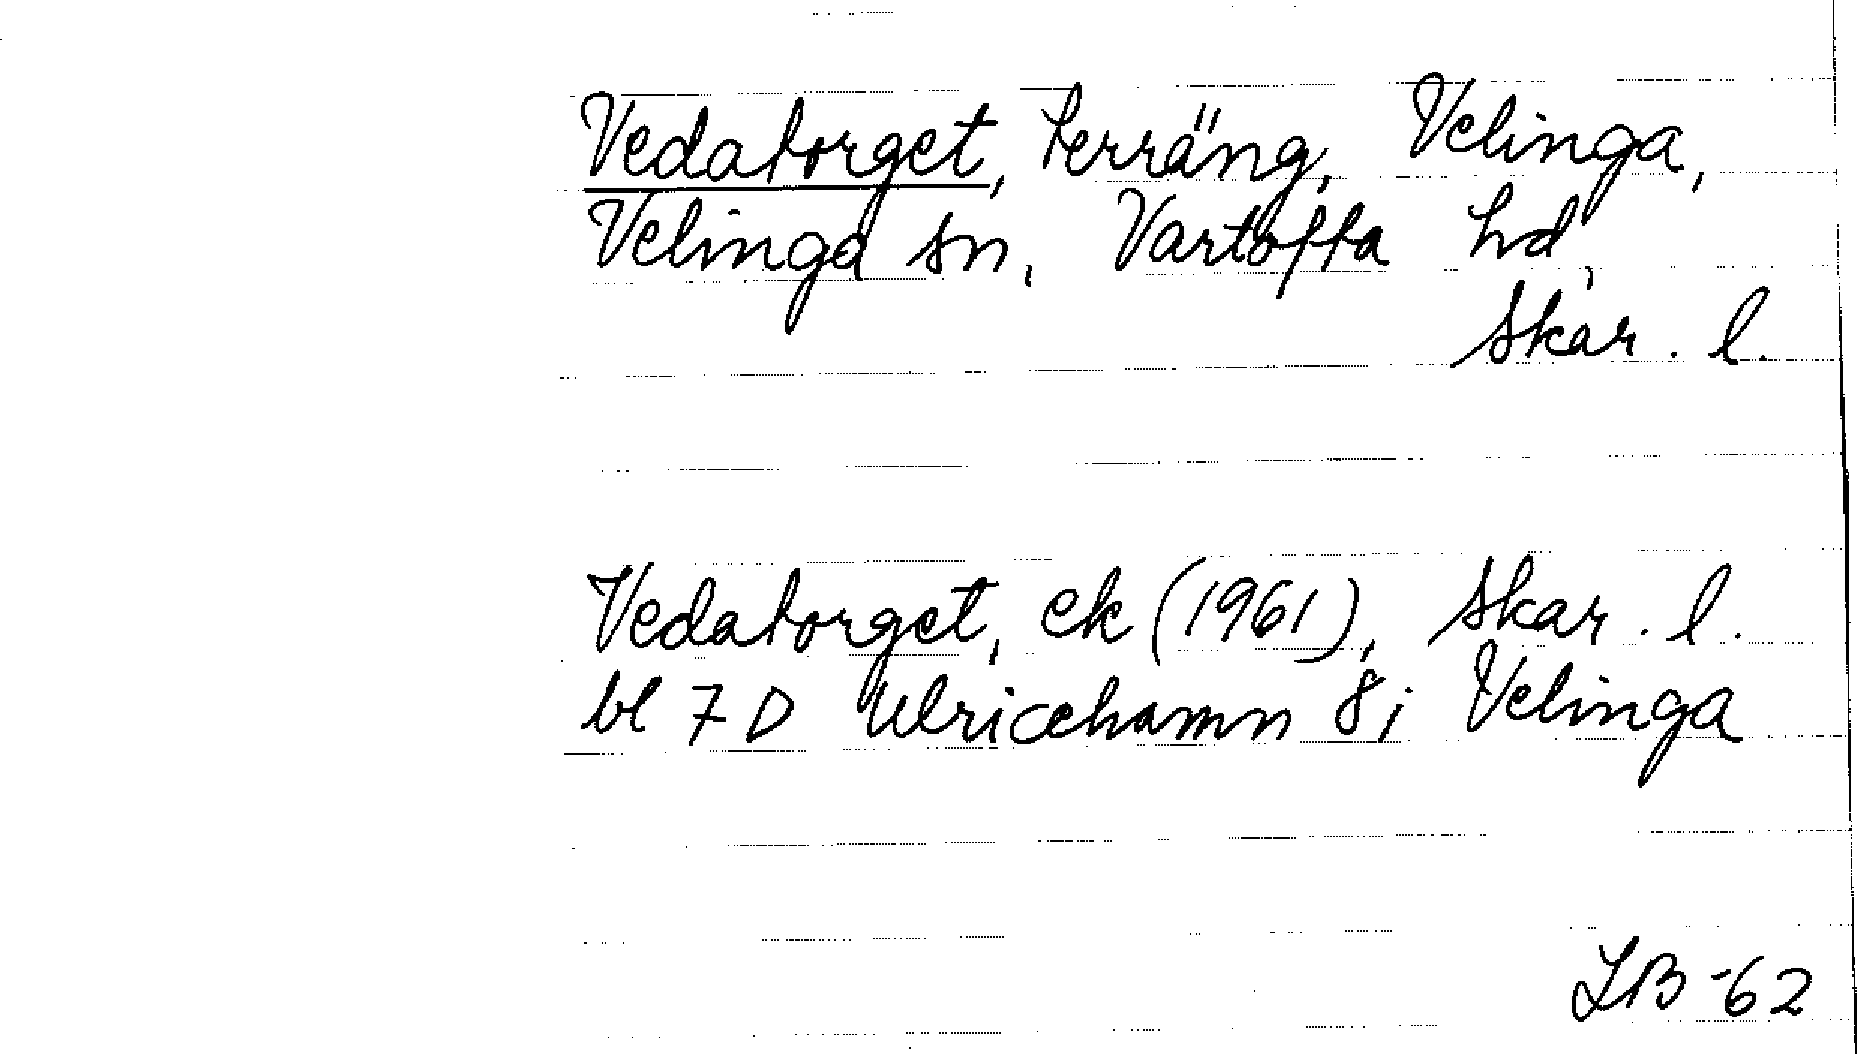 Vedatorget, terräng, Velinga,
Velinga sn, Vartofta hd,
Skar. l.
Vedatorget, ek (1961), Skar. l.
bl 7 D Ulricehamn 8i Velinga
LB -62